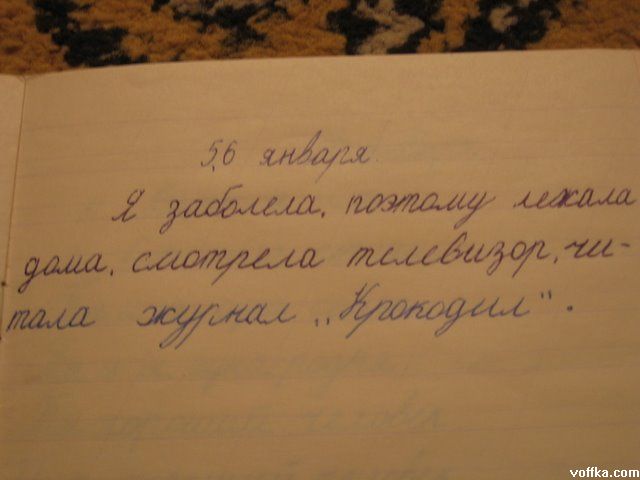 5,6 января.
Я заболела, поэтому лежала
дома, смотрела телевизор, чи-
тала журнал „Крокодил".
voffka.com